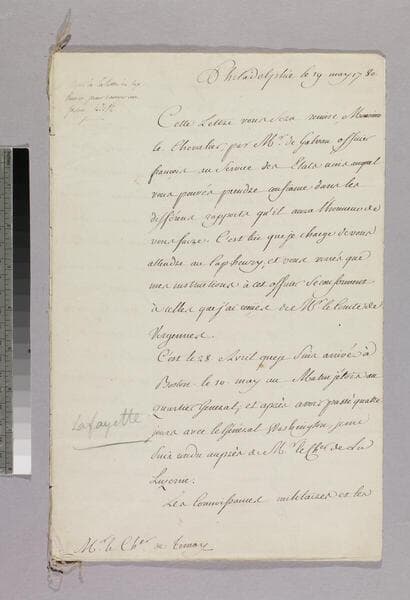 Philadelphie le 19 may 1780
Cette Lettre vous sera remise, Monsieur
le Chevalier par Mr. de Galvan officier
francois au Service des Etats unis auquel
vous pouvés prendre confiance dans les
differens rapports qu'il aura l'honneur de
vous faire. C'est lui que je charge de vous
attendre au Cap henry, et vous verrés que
mes instructions à cet officier se conforment
à celles que j'ai reçues de Mr le Comte de
Vergennes.
C'est le 28 Avril que je suis arrivé à
Boston le 10 may au Matin j'étois au
quartier General, et après avoir passé quatre
jours avec le Général Washington, je me
suis rendu auprès de Mr le Cher de La
Luzerne.
Les Connoissances militaires et les
Lafayette
Mr. le Cher de Ternay